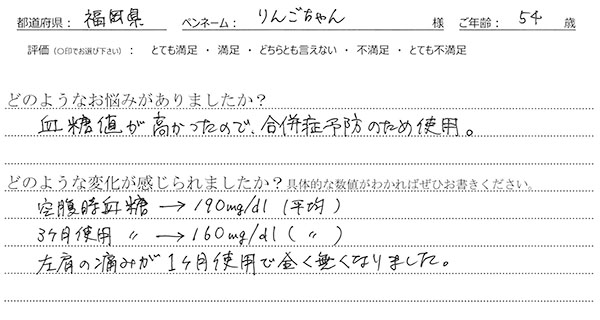 都道府県： 福岡県 ペンネーム： りんごちゃん 様 ご年齢： 54 歳
評価（〇印でお選び下さい）： とても満足 ・ 満足 ・ どちらとも言えない ・ 不満足 ・ とても不満足
どのようなお悩みがありましたか？
血糖値が高かったので、合併症予防のため使用。
どのような変化が感じられましたか？具体的な数値がわかればぜひお書きください。
空腹時血糖 → 190mg/dl (平均)
3ヶ月使用 〃 → 160mg/dl ( 〃 )
左肩の痛みが1ヶ月使用で全く無くなりました。